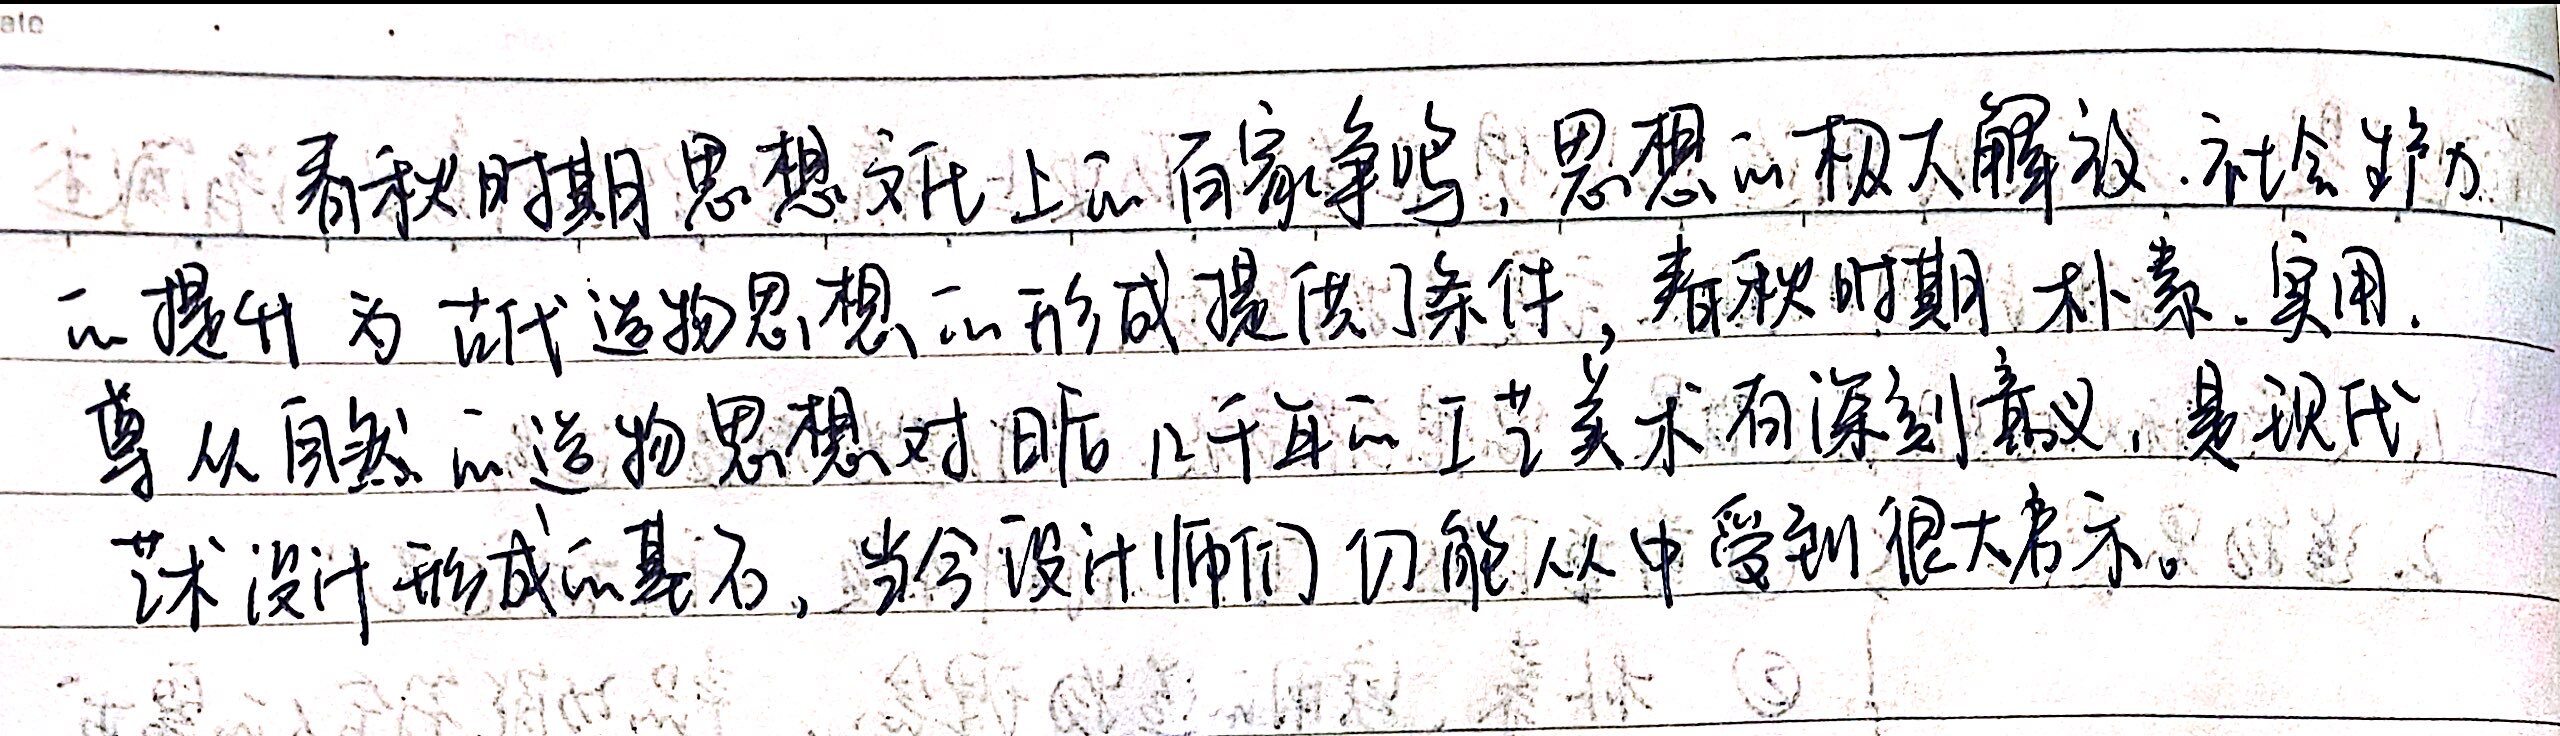 ate
春秋时期思想文化上的百家争鸣，思想的极大解放.社会生产力
的提升为古代造物思想的形成提供了条件，春秋时期朴素.实用.
尊从自然的造物思想对日后几千年的工艺美术有深刻意义，是现代
艺术设计形成的基石，当今设计师们仍能从中受到很大启示。